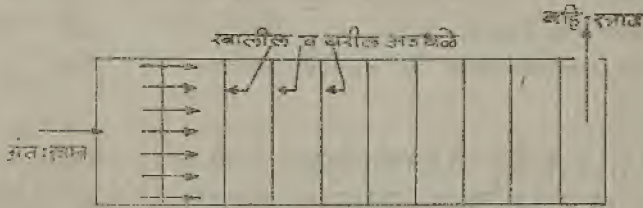 बहि:स्त्राव
खालील व वरील अडथळे
अंत:स्त्राव